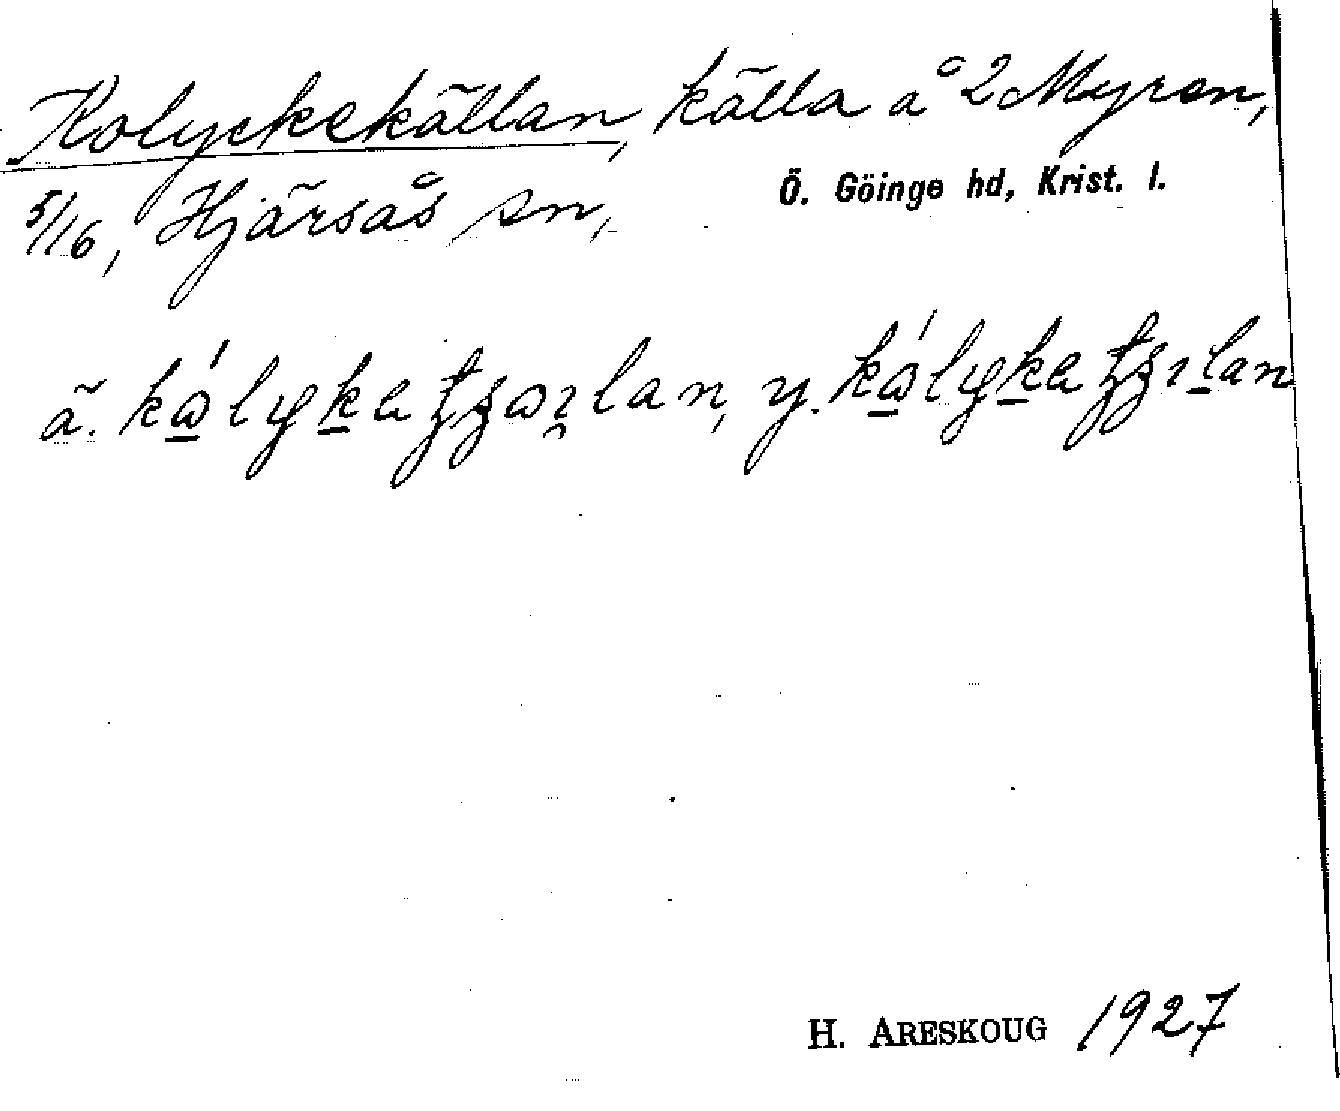 Kolyckekällan, källa å 2 Myren,
5/16, Hjärsås sn, Ö. Göinge hd, Krist. l.
ä. y.
H. ARESKOUG 1927